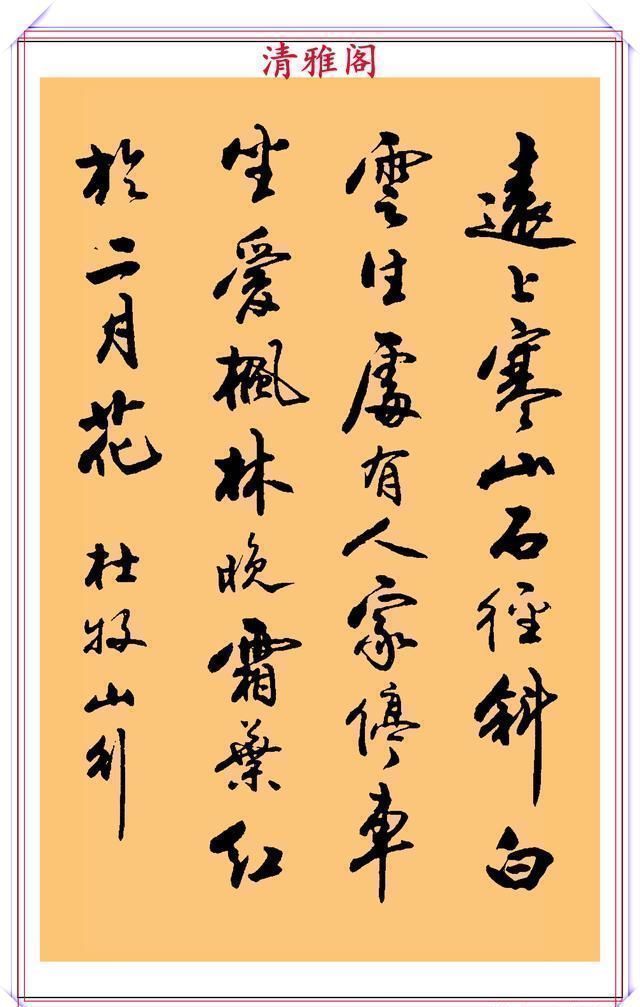 清雅阁
遠上寒山石徑斜白
雲生處有人家停車
坐愛楓林晚霜葉紅
於二月花 杜牧山行